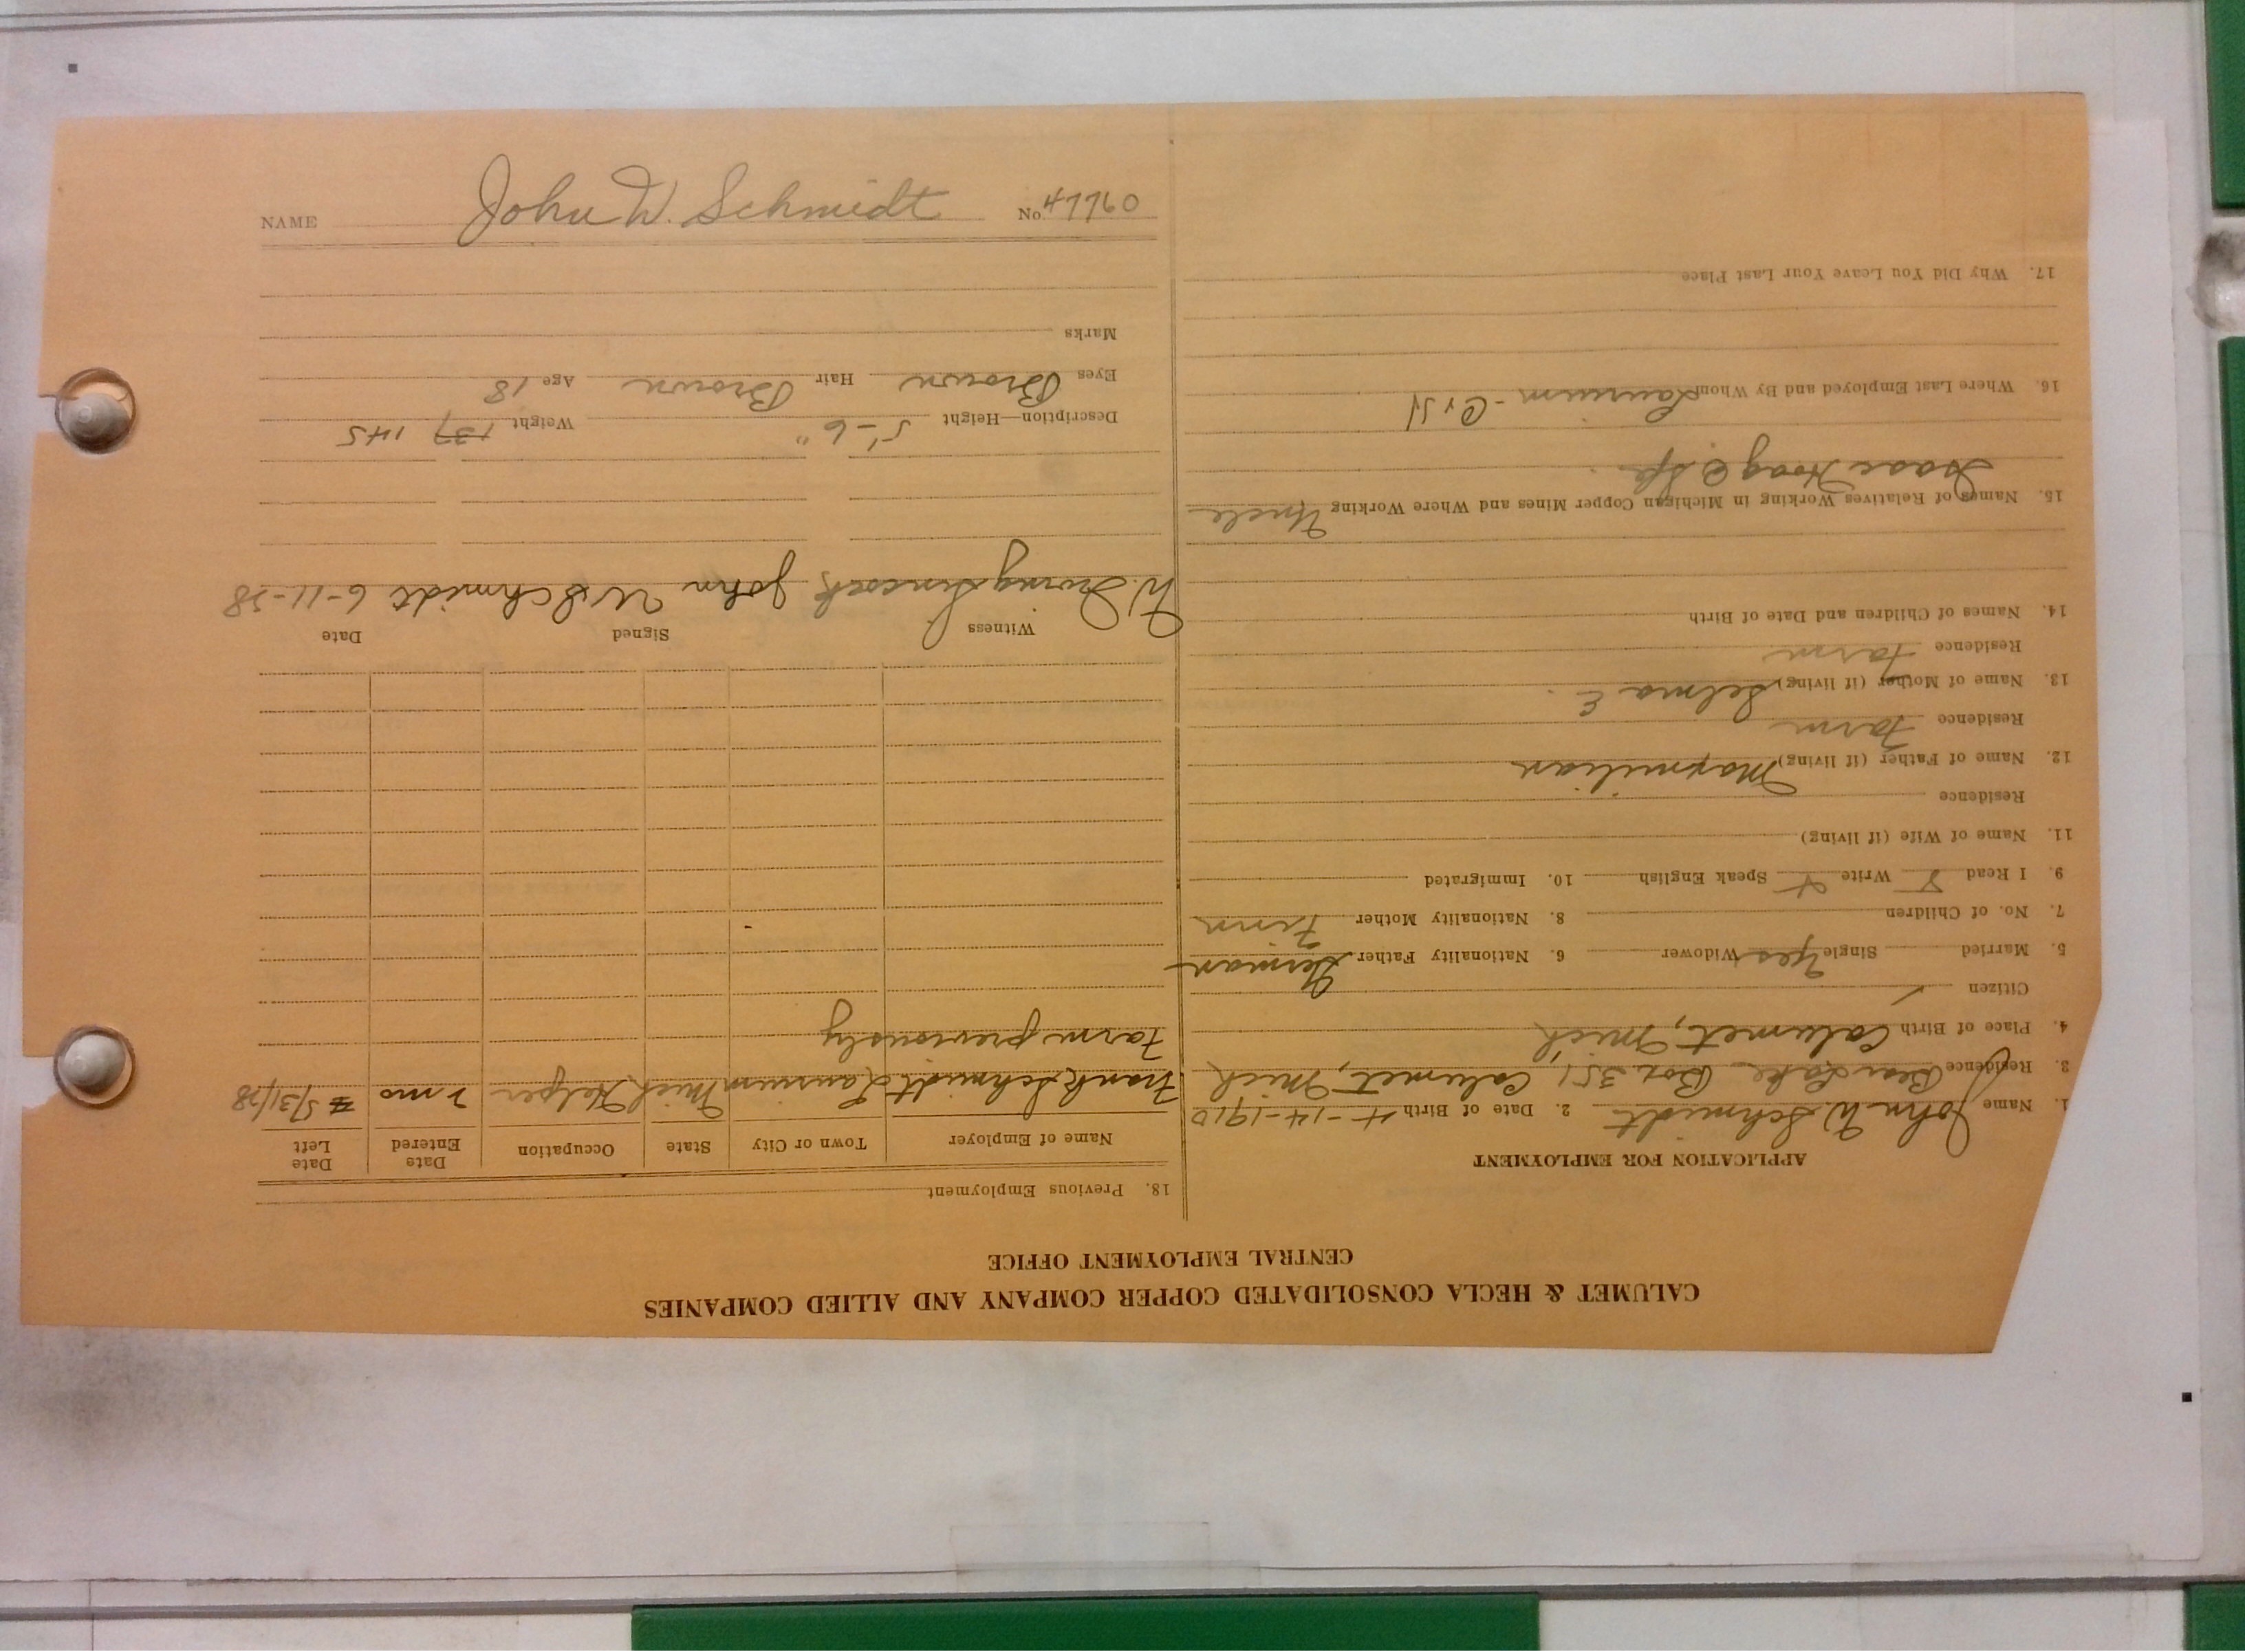 CALUMET & HECLA CONSOLIDATED COPPER COMPANY AND ALLIED COMPANIES
CENTRAL EMPLOYMENT OFFICE
APPLICATION FOR EMPLOYMENT
1. Name John W. Schmidt 2. Date of Birth 4-14-1910
3. Residence Bear Lake Box 351 Calumet, Mich
4. Place of Birth Calumet, Mich
Citizen ✓
5. Married Single Yes Widower 6. Nationality Father German
7. No. of Children 8. Nationality Mother Finn
9. I Read Write Speak English 10. Immigrated
11. Name of Wife (if living)
Residence
12. Name of Father (if living) Maxmilian
Residence Farm
13. Name of Mother (if living) Selma E.
Residence Farm
14. Names of Children and Date of Birth
15. Names of Relatives Working in Michigan Copper Mines and Where Working Uncle
Isaac
16. Where Last Employed and By Whom Laurium - C & H
17. Why Did You Leave Your Last Place
18. Previous Employment
Name of Employer Town or City State Occupation Date Entered Date Left
Frank Schmidt Laurium Mich Helper 2 mo 5/31/28
Farm previously
Witness Signed Date
W. Irving John W Schmidt 6-11-28
Description—Height 5'-6" Weight 137 145
Eyes Brown Hair Brown Age 18
Marks
NAME John W. Schmidt No 47760